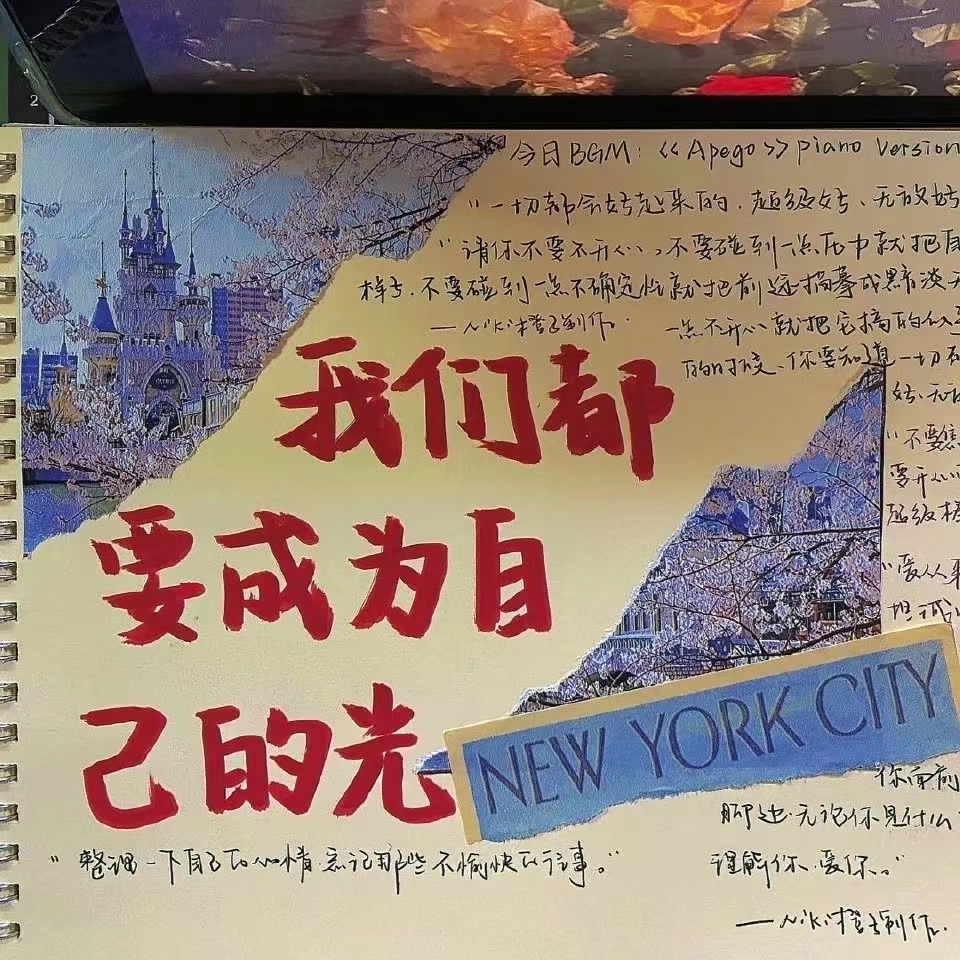 2
今日BGM:《Apego》piano version
"一切都会好起来的、超级好、无敌好
"请你不要不开心、不要碰到一点压力就把自
样子、不要碰到一点不确定性就把前途描摹成黯淡无
—Niki橙子制作.
一点不开心就把它搞的似乎
的时候、你要知道一切都
好、无敌
"不要
要开心
超级棒
"爱从来
坦诚
我们都
要成为自
己的光
NEW YORK CITY
你面前
脚边、无论你见什么
理解你、爱你。"
"整理一下自己的心情、忘记那些不愉快的往事。"
—Niki橙子制作.